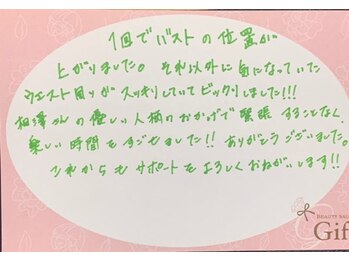 1回でバストの位置が
上がりました。それ以外に気になっていた
ウエスト周りがスッキリしていてビックリしました!!!
相澤さんの優しい人柄のおかげで緊張することなく、
楽しい時間をすごせました!! ありがとうございました。
これからもサポートをよろしくおねがいします!!
BEAUTY SAL
Gif